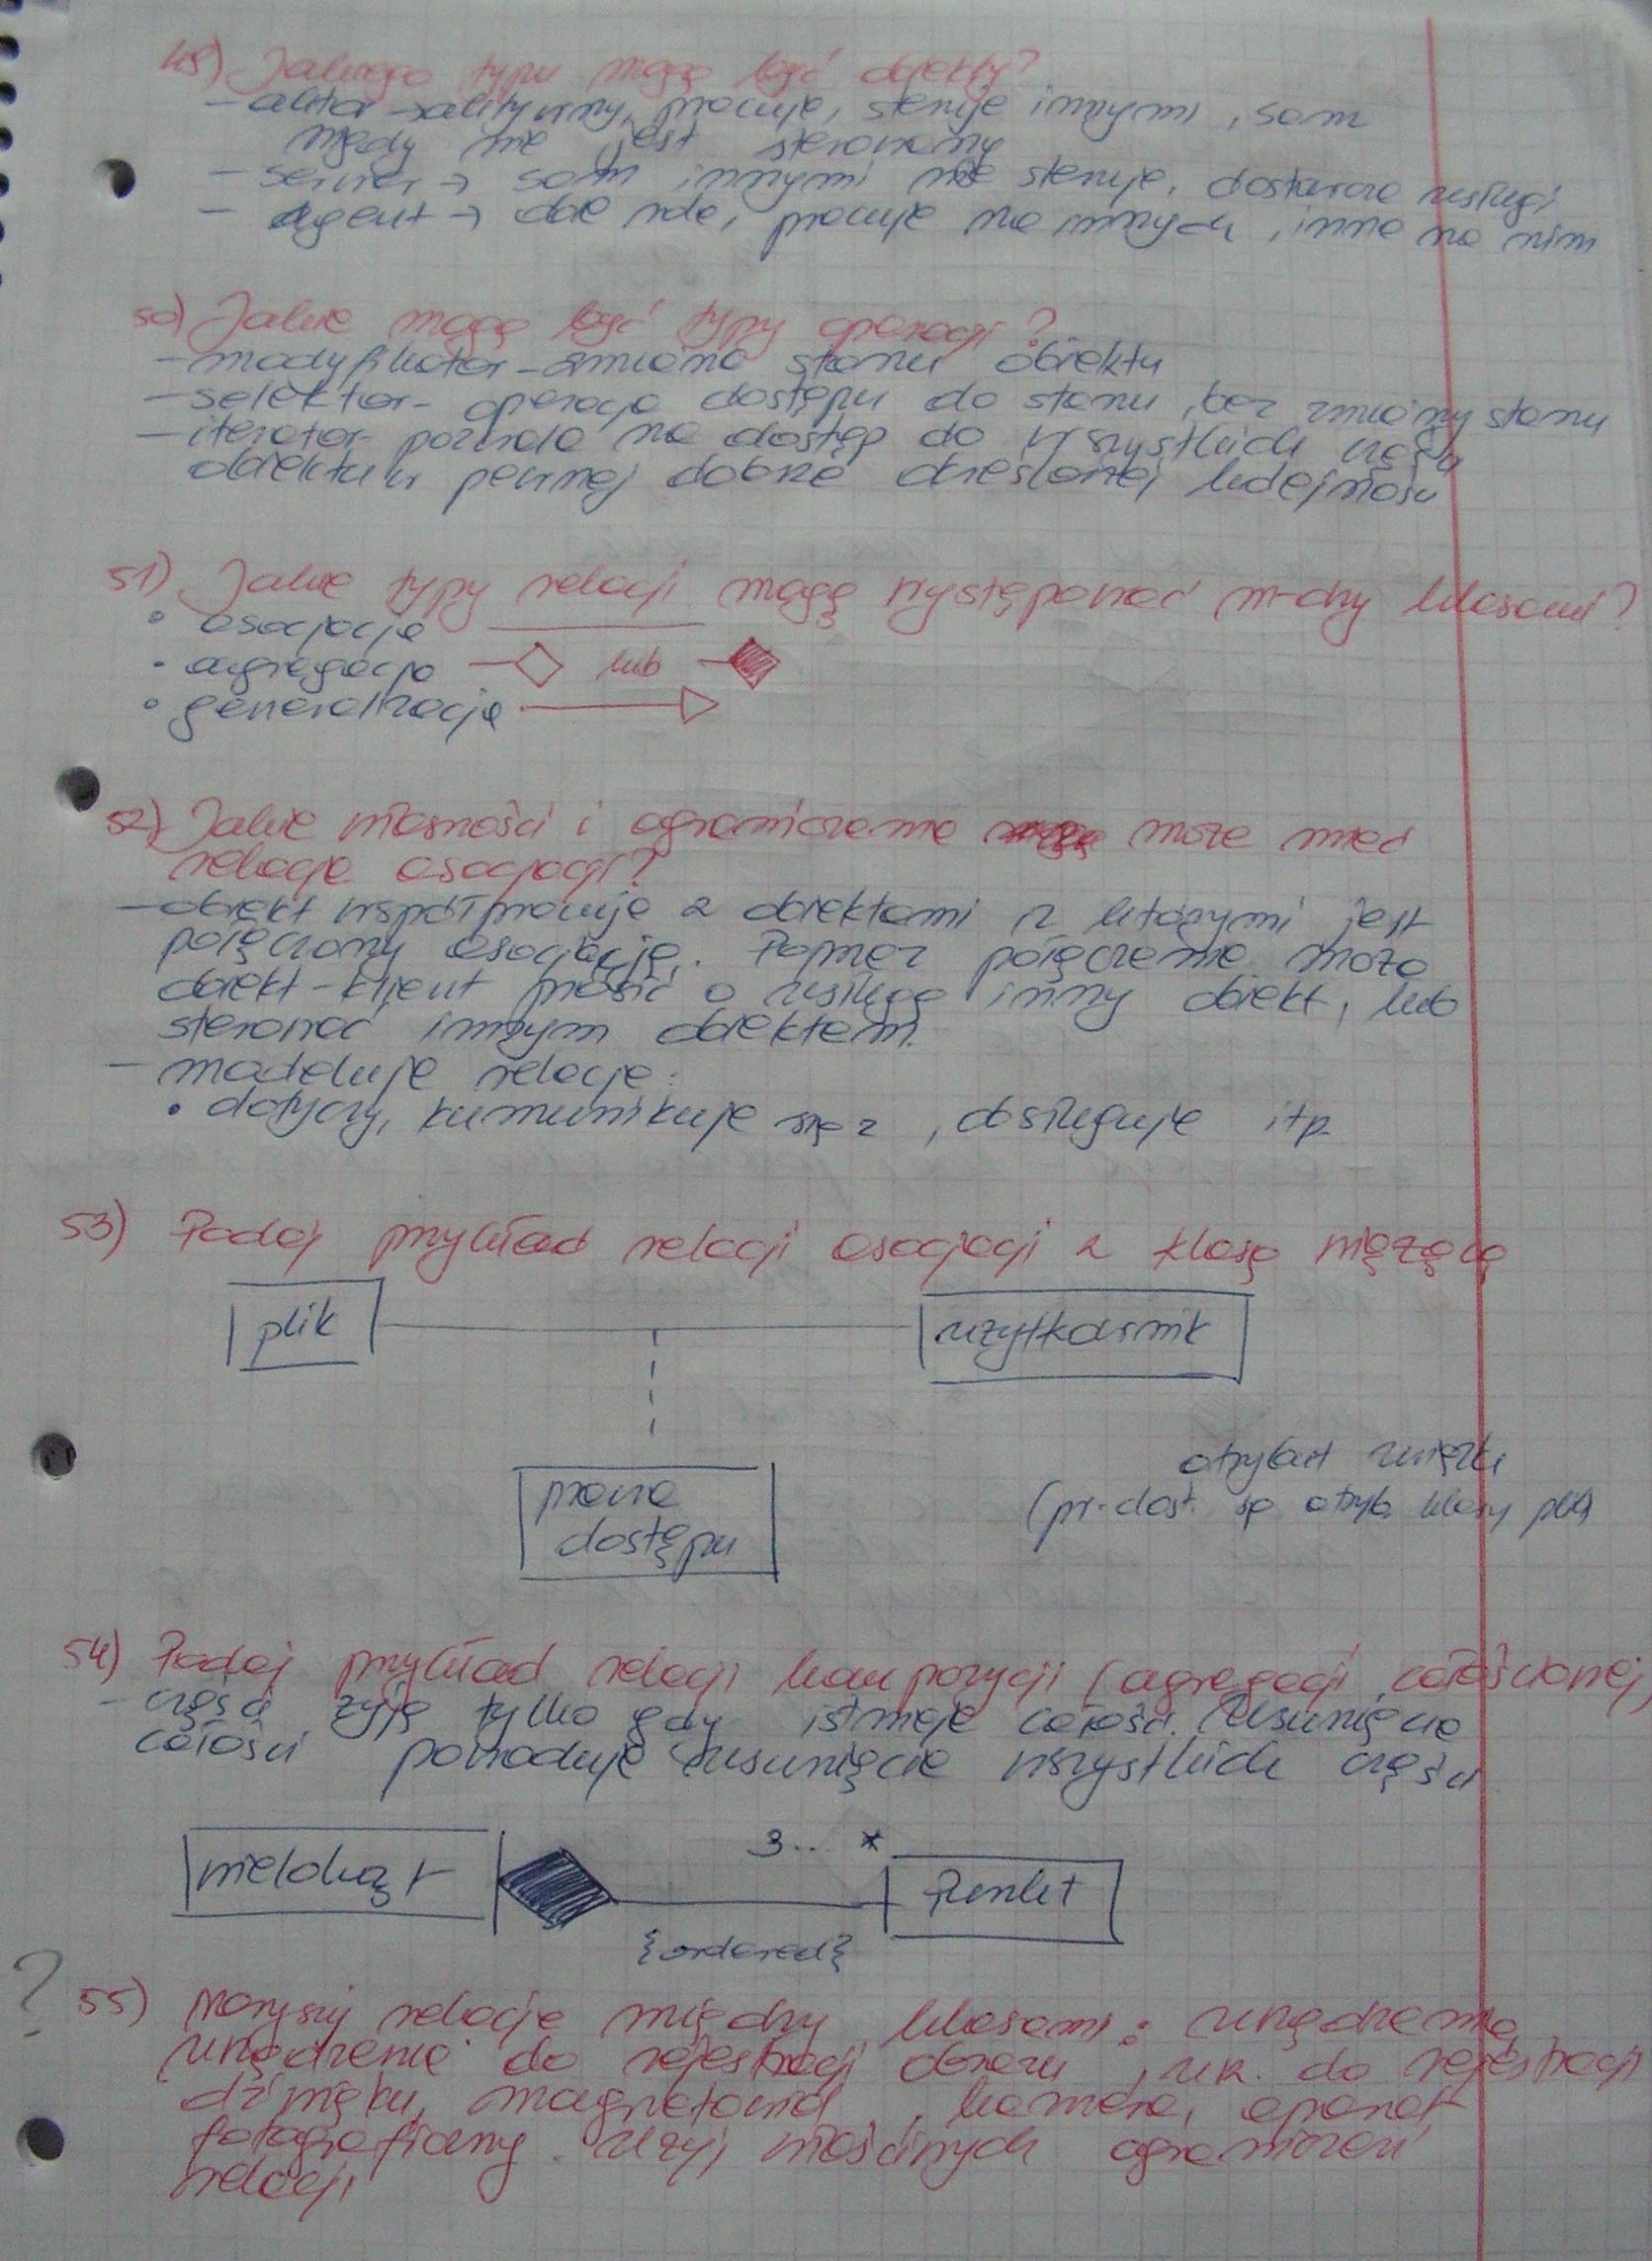 49) Jakiego typu mogą być obiekty?
- aktor → aktywny, pracuje, steruje innymi, sam
nigdy nie jest sterowany
- serwer → sam innymi nie steruje, dostarcza usługi
- agent → obie role, pracuje na innych, inne na nim
50) Jakie mogą być typy operacji?
- modyfikator - zmiana stanu obiektu
- selektor - operacja dostępu do stanu, bez zmiany stanu
- iterator - pozwala na dostęp do wszystkich części
obiektu w pewnej dobrze określonej kolejności
51) Jakie typy relacji mogą występować m-dzy klasami?
• asocjacja
• agregacja lub
• generalizacja
52) Jakie własności i ograniczenia może mieć
relacja asocjacji?
- obiekt współpracuje z obiektami z którymi jest
połączony asocjacją. Poprzez połączenie może
obiekt-klient prosić o usługę inny obiekt, lub
sterować innym obiektem.
- modeluje relacje:
• dotyczy, kumunikuje się z, obsługuje itp.
53) Podaj przykład relacji asocjacji z klasą wiążącą
plik
użytkownik
prawa
dostępu
atrybut związku
(pr. dost. są atryb. klasy plik
54) Podaj przykład relacji kompozycji (agregacji całościowej)
- części żyją tylko gdy istnieje całość. Usunięcie
całości powoduje usunięcie wszystkich części
wielokąt
3... *
Punkt
{ordered}
? 55) Narysuj relacje między klasami: urządzenie,
urządzenie do rejestracji obrazu, urz. do rejestracji
dźwięku, magnetowid, kamera, aparat
fotograficzny. Użyj właściwych ograniczeń
relacji